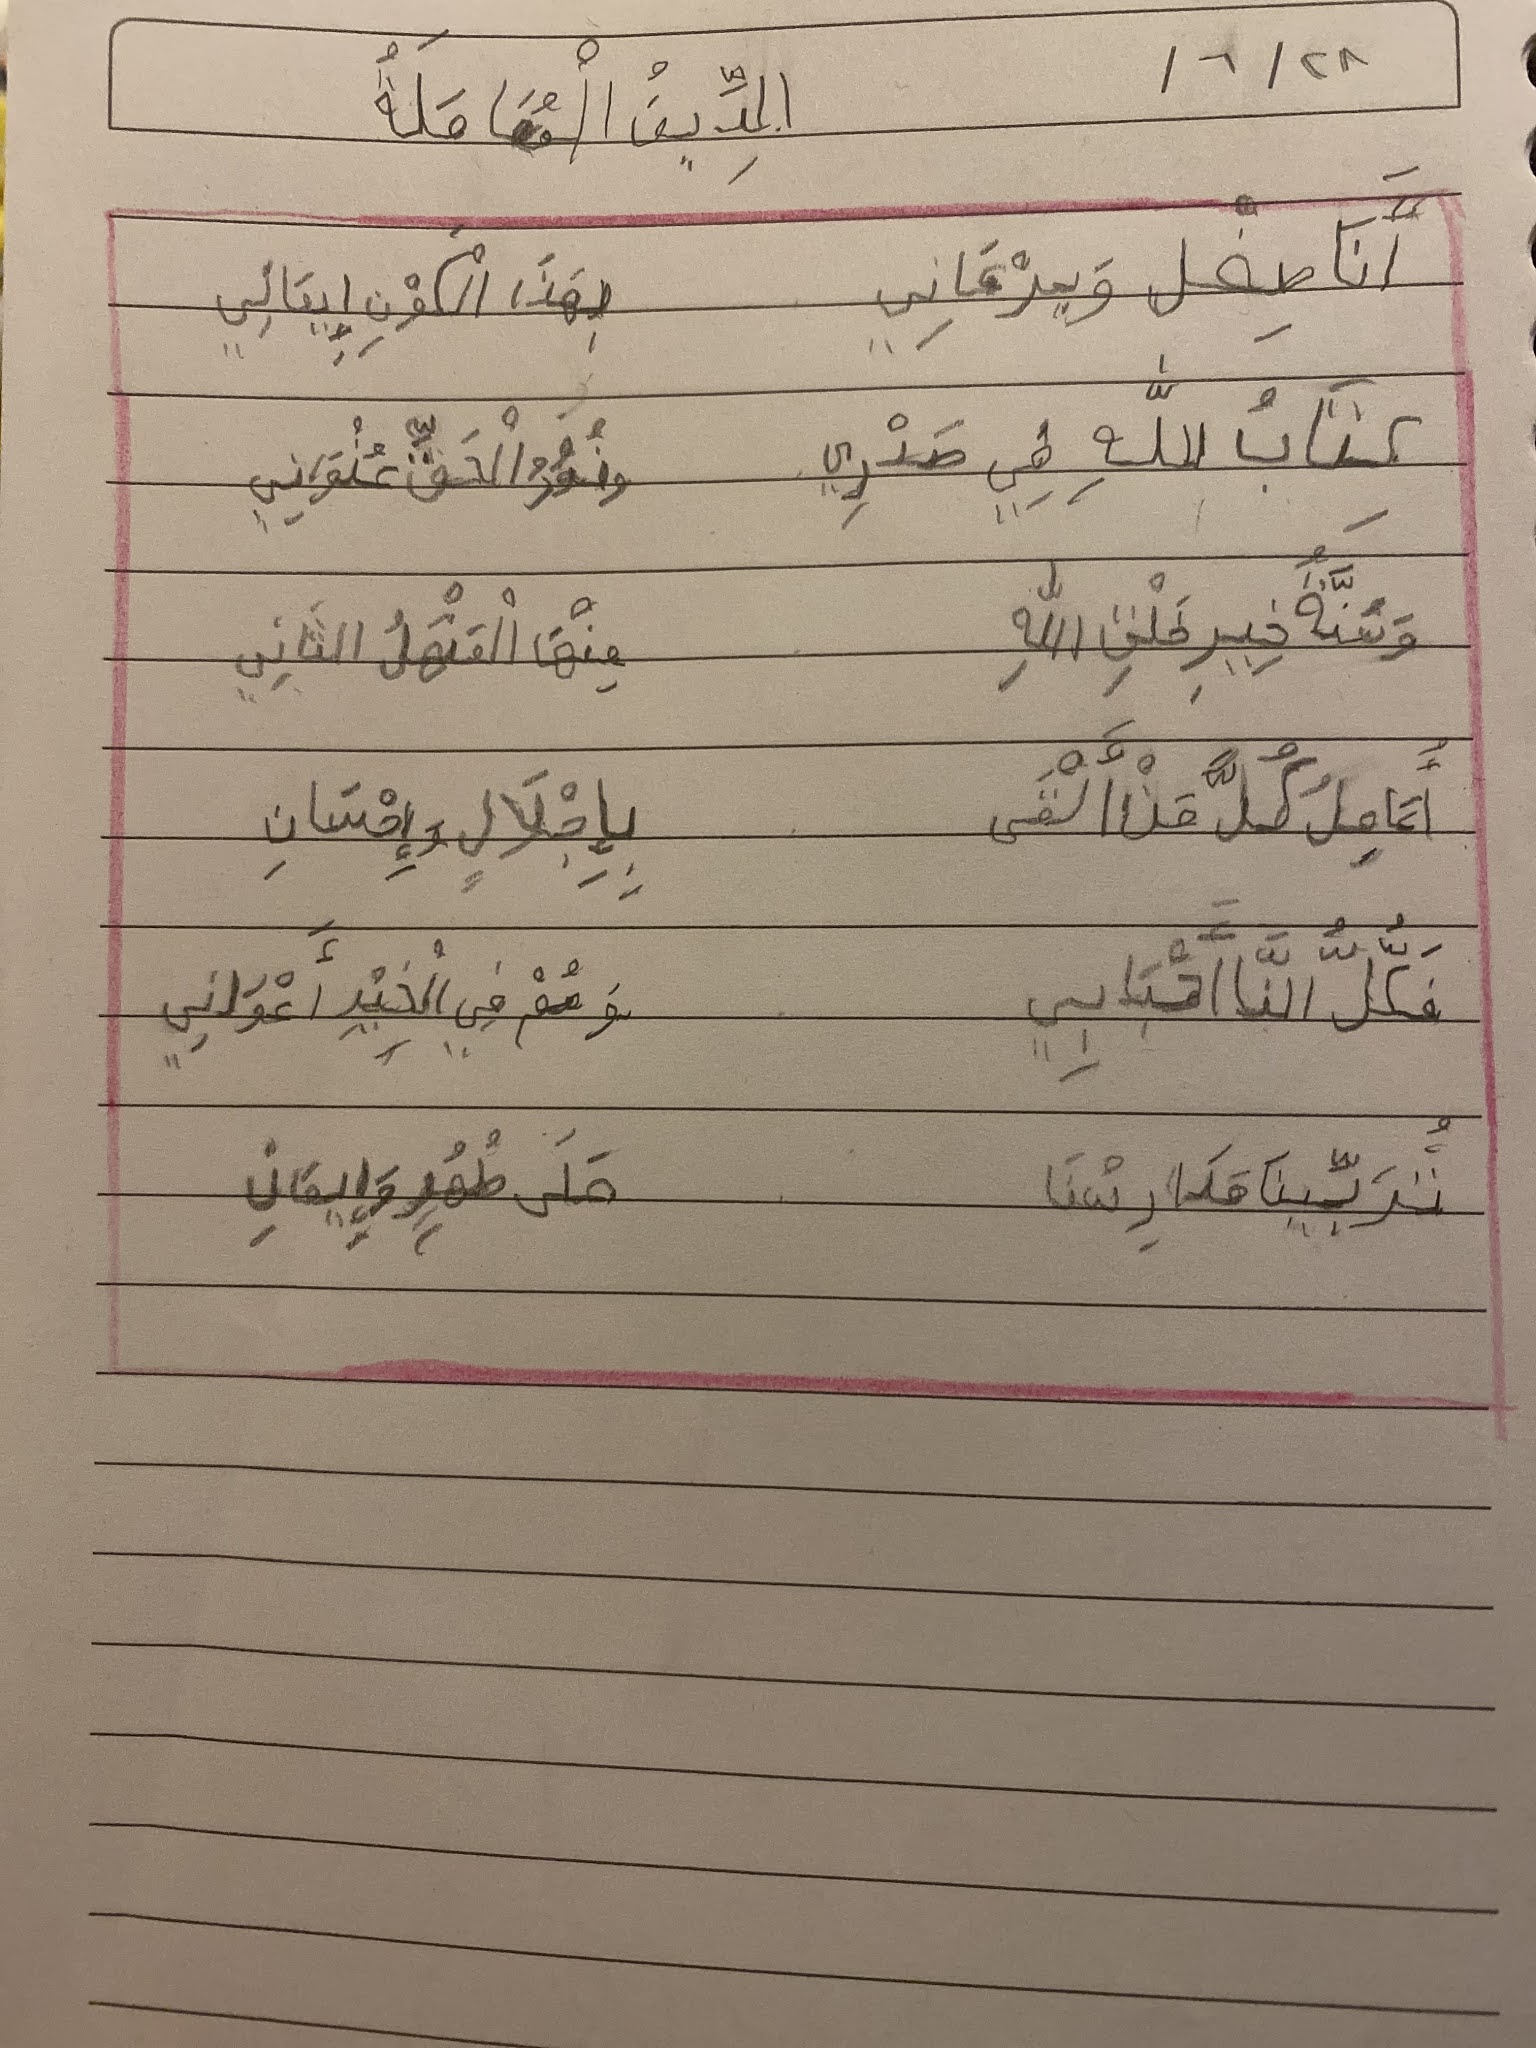 ٢٨ / ٦ /
الدِّينُ الْمُعَامَلَةُ
أَنَا طِفْل وَيرْعَانِي لِهَذَا الْكَوْنِ إِيمَانِي
كِتَابُ اللَّهِ فِي صَدْرِي وَنُورُ الْحَقِّ عُنْوَانِي
وَسُنَّةُ خِيرِ خَلْقِ اللَّهِ مِنْهَا الْمَنْهَلُ الثَّانِي
أُعَامِلُ كُلَّ مَنْ أَلْقَى بِإِجْلَالٍ وَإِحْسَانِ
فَكُلُّ أَحْبَابِي وَهُمْ فِي الْخَيْرِ أَعْوَانِي
تُرَبِّينَا مَدَارِسُنَا عَلَى طُهْرٍ وَإِيمَانِ